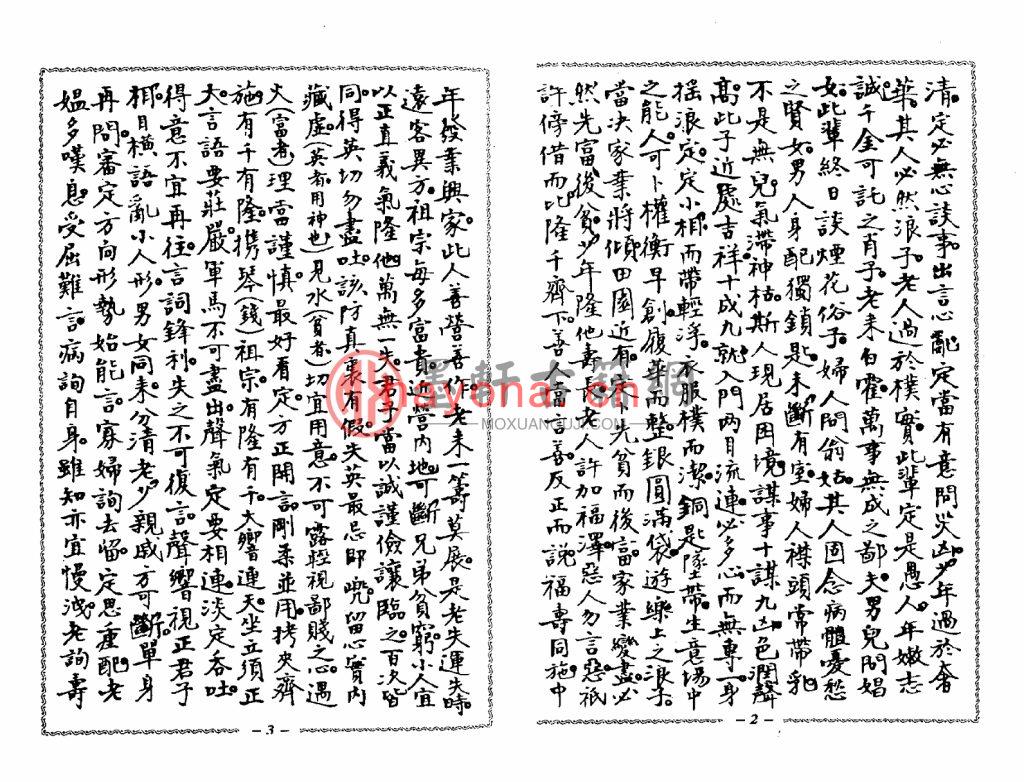 清。定必無心談事。出言心亂。定當有意問災凶。少年過於奢
華。其人必然浪子。老人過於樸實。此輩定是愚人。年嫩志
誠。千金可託之肖子。老來白霍。萬事無成之鄙夫。男兒問娼
女。此輩終日談煙花俗子。婦人問翁姑。其人固念病體憂愁
之賢女。男人身配獨鎖匙。未斷有室。婦人襟頭常帶乳。
不是無兒。氣滯神枯。斯人現居困境。謀事十謀九凶。色潤聲
高。此子近處吉祥。十成九就。入門兩目流連。必多心而無專。一身
搖浪。定定小相而帶輕浮。衣服樸而潔。銅匙墜帶。生意場中
之能人。可卜權衡早創。履華而整。銀圓滿袋。遊樂上之浪子。
當決家業將傾。田園近有變。卜先貧而後富。家業變盡。必
然先富後貧。少年隆他壽長。老人許加福澤。惡人勿言惡。祇
許傍借而比隆千齊下。善人福言善。反正而說福壽同施。中
年發業興家。此人善營善作。老來一籌莫展。是老失運失時。
遠客異方。祖宗每多富貴。近營內地。可斷兄弟貧窮。小人宜
以正直義氣隆他。萬無一失。君子當以誠謹儉讓臨之。百次皆
同。得英切勿盡吐。該防真裏有假。失英最忌即兜。留心實內
藏虛。(英者。用神也)見水(貧者)切宜用意。不可露輕視鄙賤之心。遇
火(富者)理當謹慎。最好看定方正開言。剛柔並用。拷夾齊
施。有千有隆。攜琴(錢)祖宗。有隆有千。大響連天。坐立須正
大。言語要莊嚴。軍馬不可盡出。聲氣定要相連。淡定吞吐。
得意不宜再往。言詞鋒利。失之不可復言。聲響視正君子
相。目橫語亂小人形。男女同來。分清老少親戚方可斷。單身
再問。審定方向形勢始能言。寡婦詢去留。定思重配。老
媼多嘆息。受屈難言。病詢自身。雖知亦宜慢洩。老詢壽
- 2 -
- 3 -
墨軒古籍網
ayona.cn
MOXUANGUJI.COM